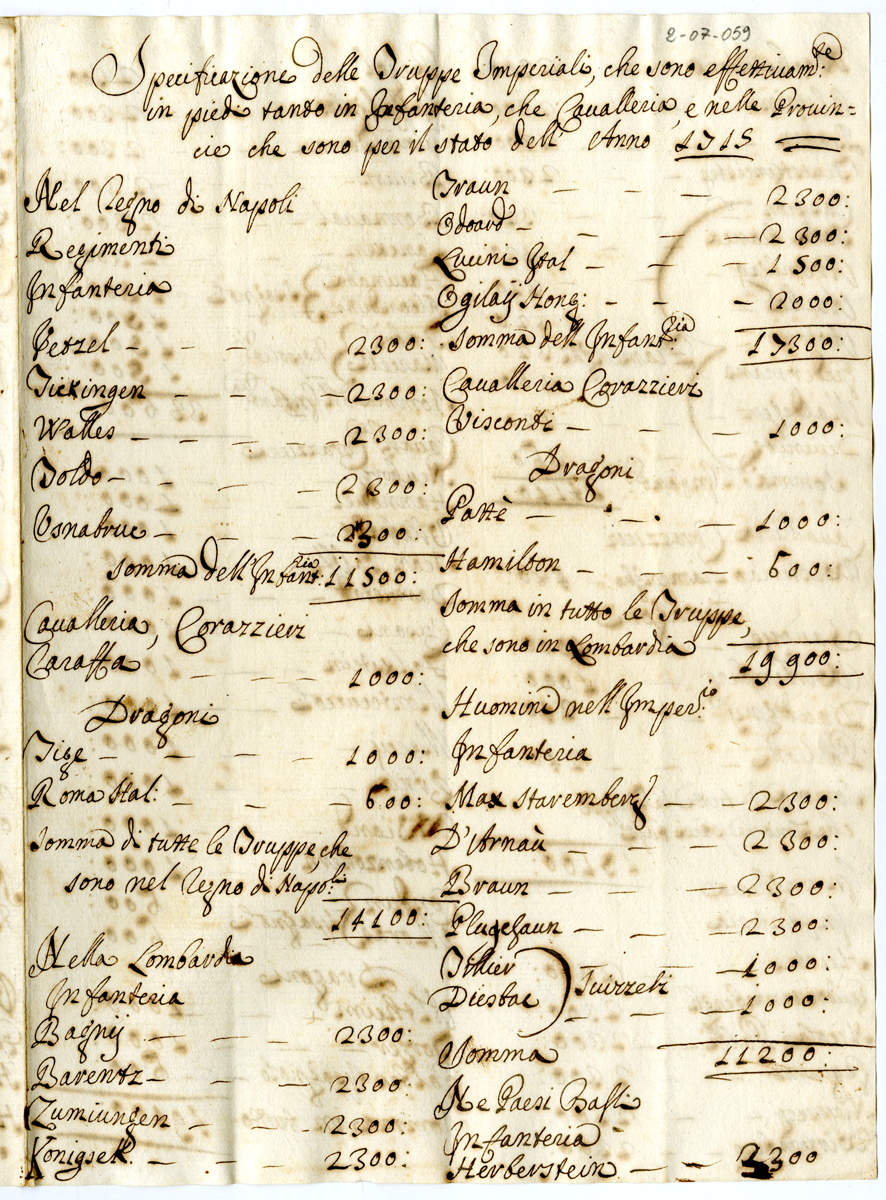 2-07-059
Specificazione delle Truppe Imperiali, che sono effettivam:te
in piedi tanto in Infanteria, che Cavalleria, e nelle Provin=
cie che sono per il stato dell' Anno 1715
Nel Regno di Napoli
Regimenti
Infanteria
Vetzel - - - 2300:
Sickingen - - - 2300:
Walles - - - - 2300:
Toldo - - - - 2300:
Osnabruc - - - 2300:
Somma dell' Infant:ria 11500:
Cavalleria, Corazzieri
Caraffa - - - 1000:
Dragoni
Tige - - - - 1000:
Roma Ital: - - - 600:
Somma di tutte le Truppe, che
sono nel Regno di Napoli
14100:
Nella Lombardia
Infanteria
Bagnij - - - 2300:
Barentz - - - 2300:
Zumiungen - - - 2300:
Königsek - - - 2300:
Traun - - - 2300:
Odoard - - - 2300:
Lucini Ital - - - 1500:
Ogilaij Hong: - - - 2000:
Somma dell' Infant:ria 17300:
Cavalleria Corazzieri
Visconti - - - 1000:
Dragoni
Pattè - - - 1000:
Hamilton - - - - 600:
Somma in tutto le Truppe,
che sono in Lombardia 19900:
Huomini nell' Imper:io
Infanteria
Max Staremberg - - 2300:
D'Arnaù - - - 2300:
Braun - - - - 2300:
Plugezaun - - - 2300:
Tillier - - 1000:
Suizzeri
Diesbac - - - 1000:
Somma 11200:
Ne Paesi Bassi
Infanteria
Herberstein - - 2300